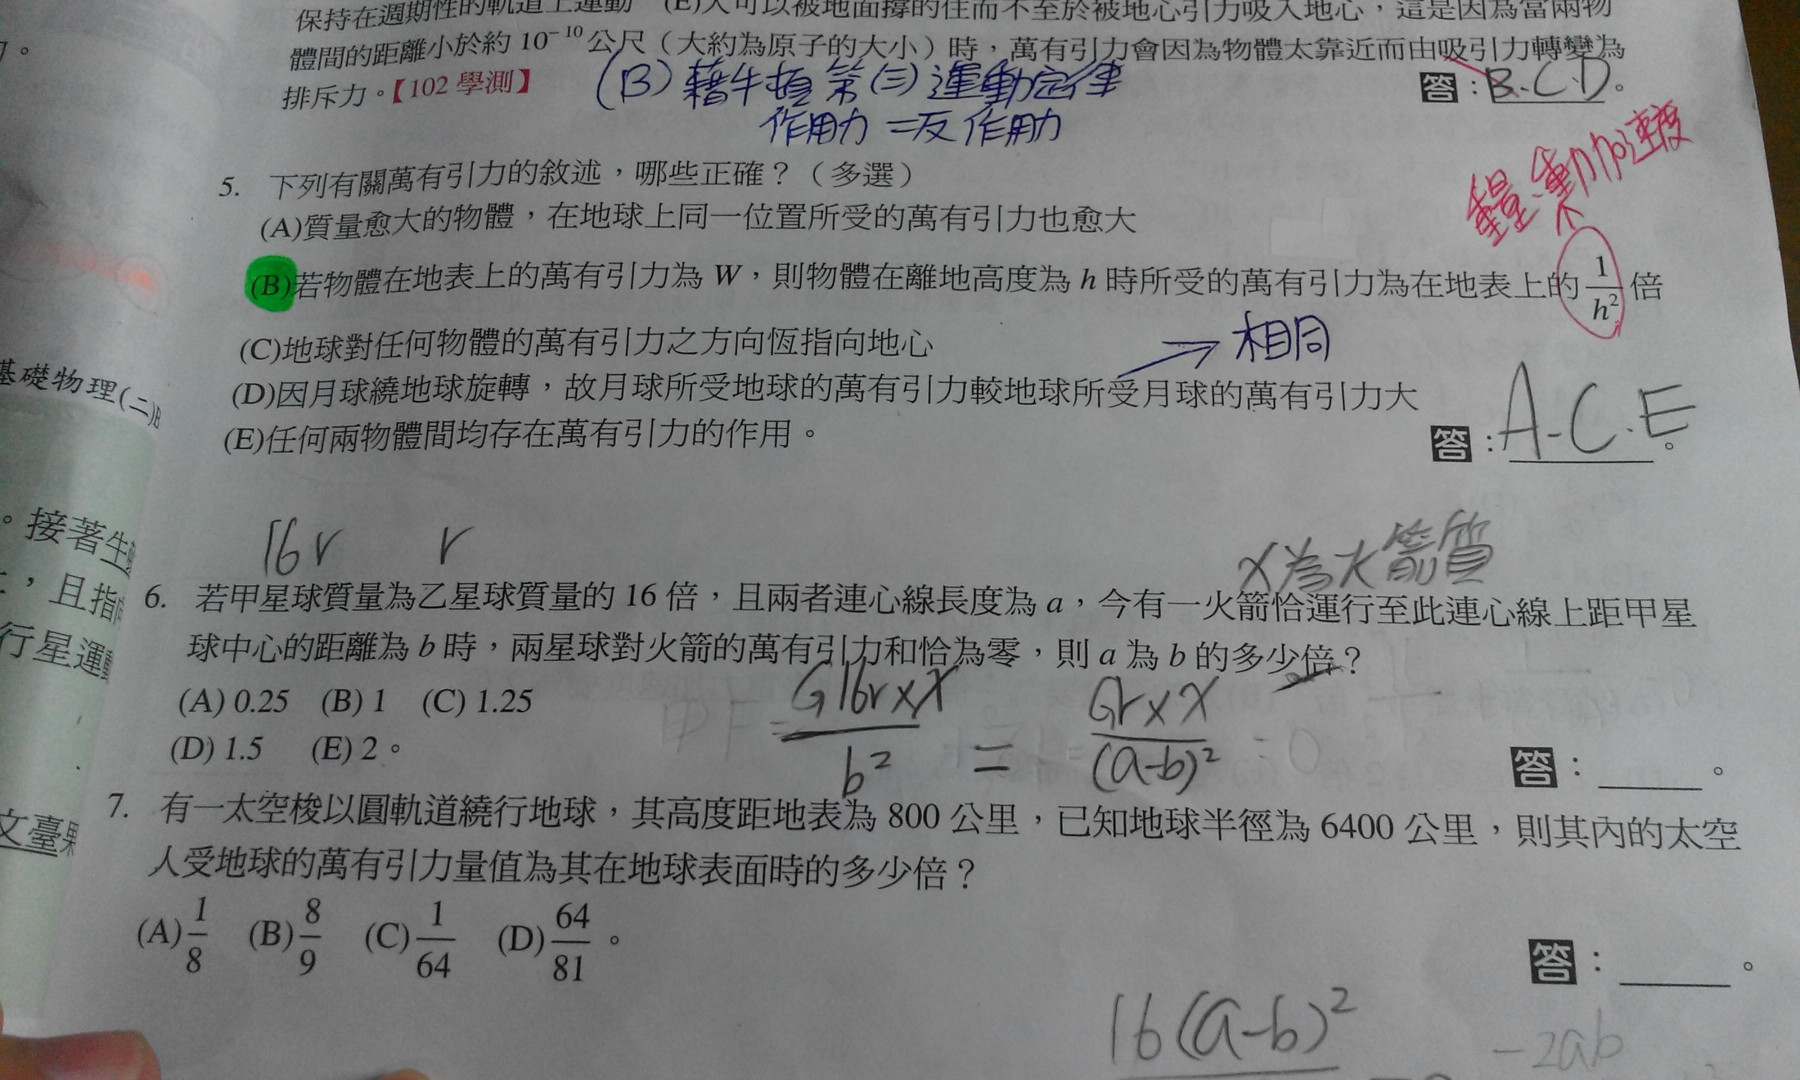 保持在週期性的軌道上運動 (E)人可以被地面撐的住而不至於被地心引力吸入地心，這是因為當兩物
體間的距離小於約 10⁻¹⁰ 公尺（大約為原子的大小）時，萬有引力會因為物體太靠近而由吸引力轉變為
排斥力。【102 學測】
答：B.C.D。
(B) 藉牛頓第(三)運動定律
作用力=反作用力
5. 下列有關萬有引力的敘述，哪些正確？（多選）
(A)質量愈大的物體，在地球上同一位置所受的萬有引力也愈大
加速度
(B)若物體在地表上的萬有引力為 W，則物體在離地高度為 h 時所受的萬有引力為在地表上的 1/h² 倍
(C)地球對任何物體的萬有引力之方向恆指向地心
→相同
(D)因月球繞地球旋轉，故月球所受地球的萬有引力較地球所受月球的萬有引力大
(E)任何兩物體間均存在萬有引力的作用。
答：A.C.E。
基礎物理(二)B
。接著生
，且指
行星運動
文臺
16r r
x為火箭質
6. 若甲星球質量為乙星球質量的 16 倍，且兩者連心線長度為 a，今有一火箭恰運行至此連心線上距甲星
球中心的距離為 b 時，兩星球對火箭的萬有引力和恰為零，則 a 為 b 的多少倍？
(A) 0.25 (B) 1 (C) 1.25
(D) 1.5 (E) 2。
G16r×X/b² = Gr×X/(a-b)²
答：____。
7. 有一太空梭以圓軌道繞行地球，其高度距地表為 800 公里，已知地球半徑為 6400 公里，則其內的太空
人受地球的萬有引力量值為其在地球表面時的多少倍？
(A) 1/8 (B) 8/9 (C) 1/64 (D) 64/81。
答：____。
16(a-b)²
-2ab